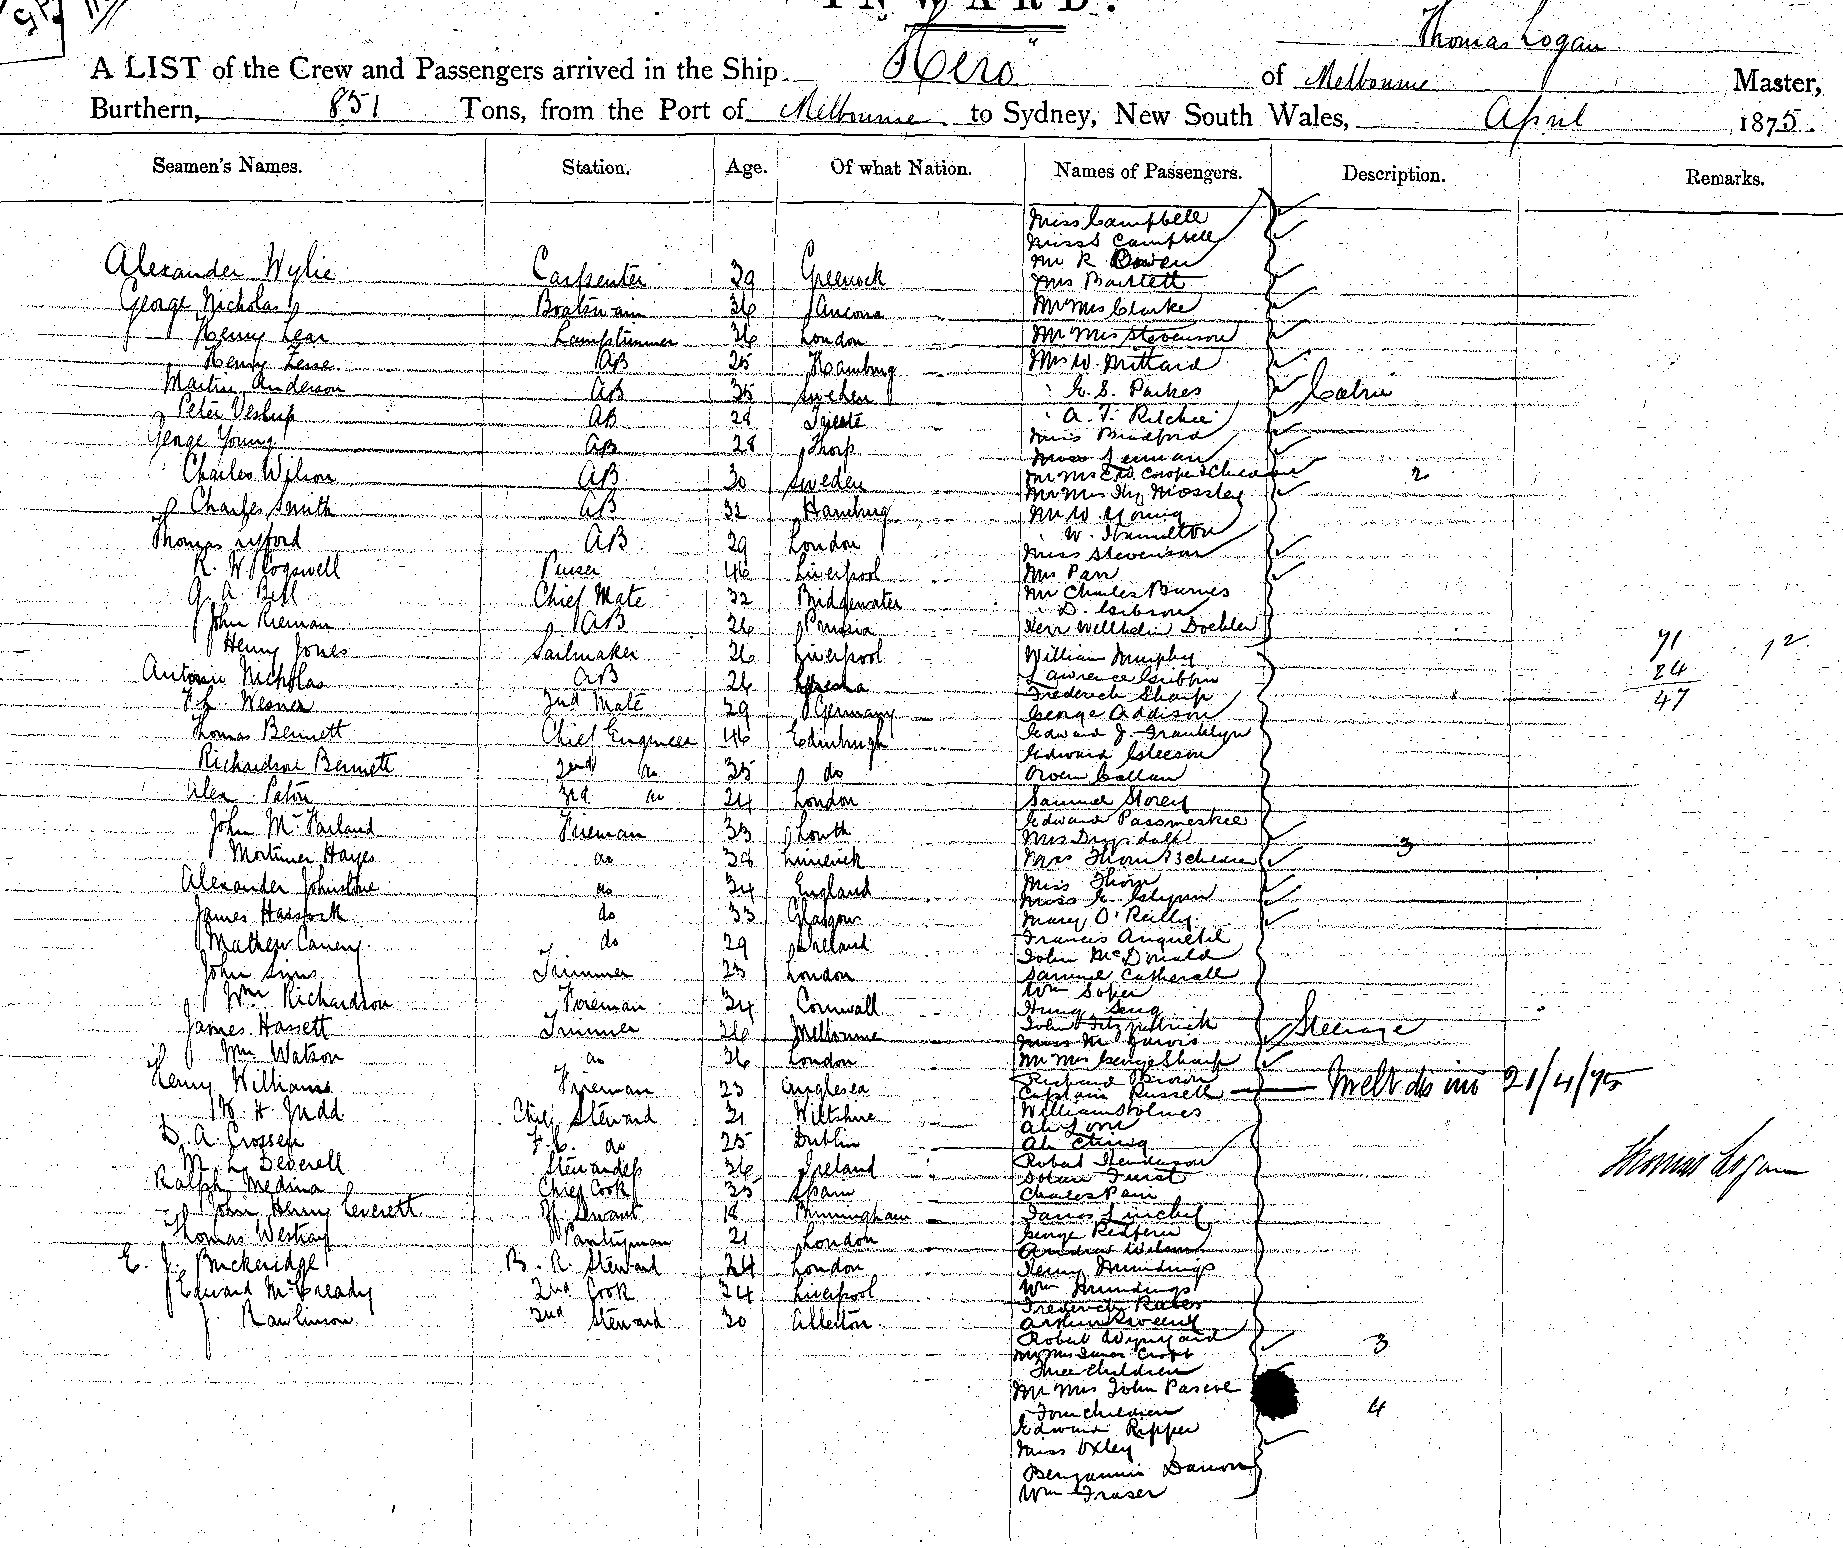 INWARD.
Thomas Logan
A LIST of the Crew and Passengers arrived in the Ship "Hero" of Melbourne Master,
Burthern, 851 Tons, from the Port of Melbourne to Sydney, New South Wales, April 1875.
Seamen's Names. Station. Age. Of what Nation. Names of Passengers. Description. Remarks.
Alexander Wylie Carpenter 39 Greenock
George Nicholas Boatswain 36 Ancona
Henry Lear Lamptrimmer 36 London
Henry AB 25 Hamburg
Martin Anderson AB 35 Sweden
Peter AB 28
George Young AB 28
Charles Wilson AB 30 Sweden
Charles Smith AB 32 Hamburg
Thomas AB 29 London
R. W. Cogswell Purser 46 Liverpool
G. A. Bell Chief Mate 32 Bridgewater
John Rieman AB 26 Prussia
Henry Jones Sailmaker 26 Liverpool
Antonio Nicholas AB 26
Wesner 2nd Mate 29 Germany
Thomas Bennett Chief Engineer 46 Edinburgh
Richardson Bennett 2nd do 35 do
Alex Paton 3rd do 24 London
John McParland Fireman 33 Louth
Mortimer Hayes do 38 Limerick
Alexander Johnstone do 34 England
James Hassock do 33 Glasgow
Mathew Canery do 29 Ireland
John Sims Trimmer 23 London
Wm Richardson Foreman 34 Cornwall
James Hassett Trimmer 26 Melbourne
Wm Watson do 36 London
Henry Williams Fireman 23 Anglesea
W. H. Judd Chief Steward 31 Wiltshire
D. A. Crossen F.C. do 25 Dublin
M. L. Deverell Stewardess 36 Ireland
Ralph Medina Chief Cook 35 Spain
John Henry Leverett Servant 18 Birmingham
Thomas Westray Pantryman 21 London
E. J. Buckeridge B. R. Steward 24 London
Edward McCready 2nd Cook 34 Liverpool
J. Rawlinson 2nd Steward 30 Allerton
Miss Campbell
Miss S Campbell
Mr R Bowen
Mrs Bartlett
Mr Mrs Clarke
Mr Mrs Stevenson
Mr W. Mittard
E. S. Parkes Cabin
A. T. Ritchie
Miss Bradford
Miss
Mr Mrs Cooper & Children 2
Mr Mrs Hy Mossley
Mr W. Young
W. Hamilton
Miss Stevenson
Mrs Parr
Mr Charles Burnes
D. Gibson
Herr Doebler
William Murphy
Lawrence Gibbin
Frederick Sharp
George Addison
Edward J. Franklyn
Edward Gleeson
Owen Callan
Samuel Storey
Edward
Mrs Drysdale
Mrs Thorn & 3 Children 3
Miss Thorn
Miss E. Glynn
Mary O'Reilly
Francis Anquetil
John McDonald
Samuel Catherall
Wm Soper
Hung Seng
John Fitzpatrick
Miss M Jarvis Steerage
Mr Mrs George Sharp
Richard Brown
Captain Russell — Melb dis 21/4/75
William Holmes
Ah
Ah Ching
Robert Henderson
Furst
Charles Parr
James
George Redfern
Andrew Wilson
Henry Mundings
Wm Mundings
Frederick
Arthur
Robert Wynyard
Mr Mrs James Croft
Three Children 3
Mr Mrs John Pascoe
Four children 4
Edward Ripper
Miss Oxley
Benjamin
Wm Fraser
71 12
24
47
Thomas Logan